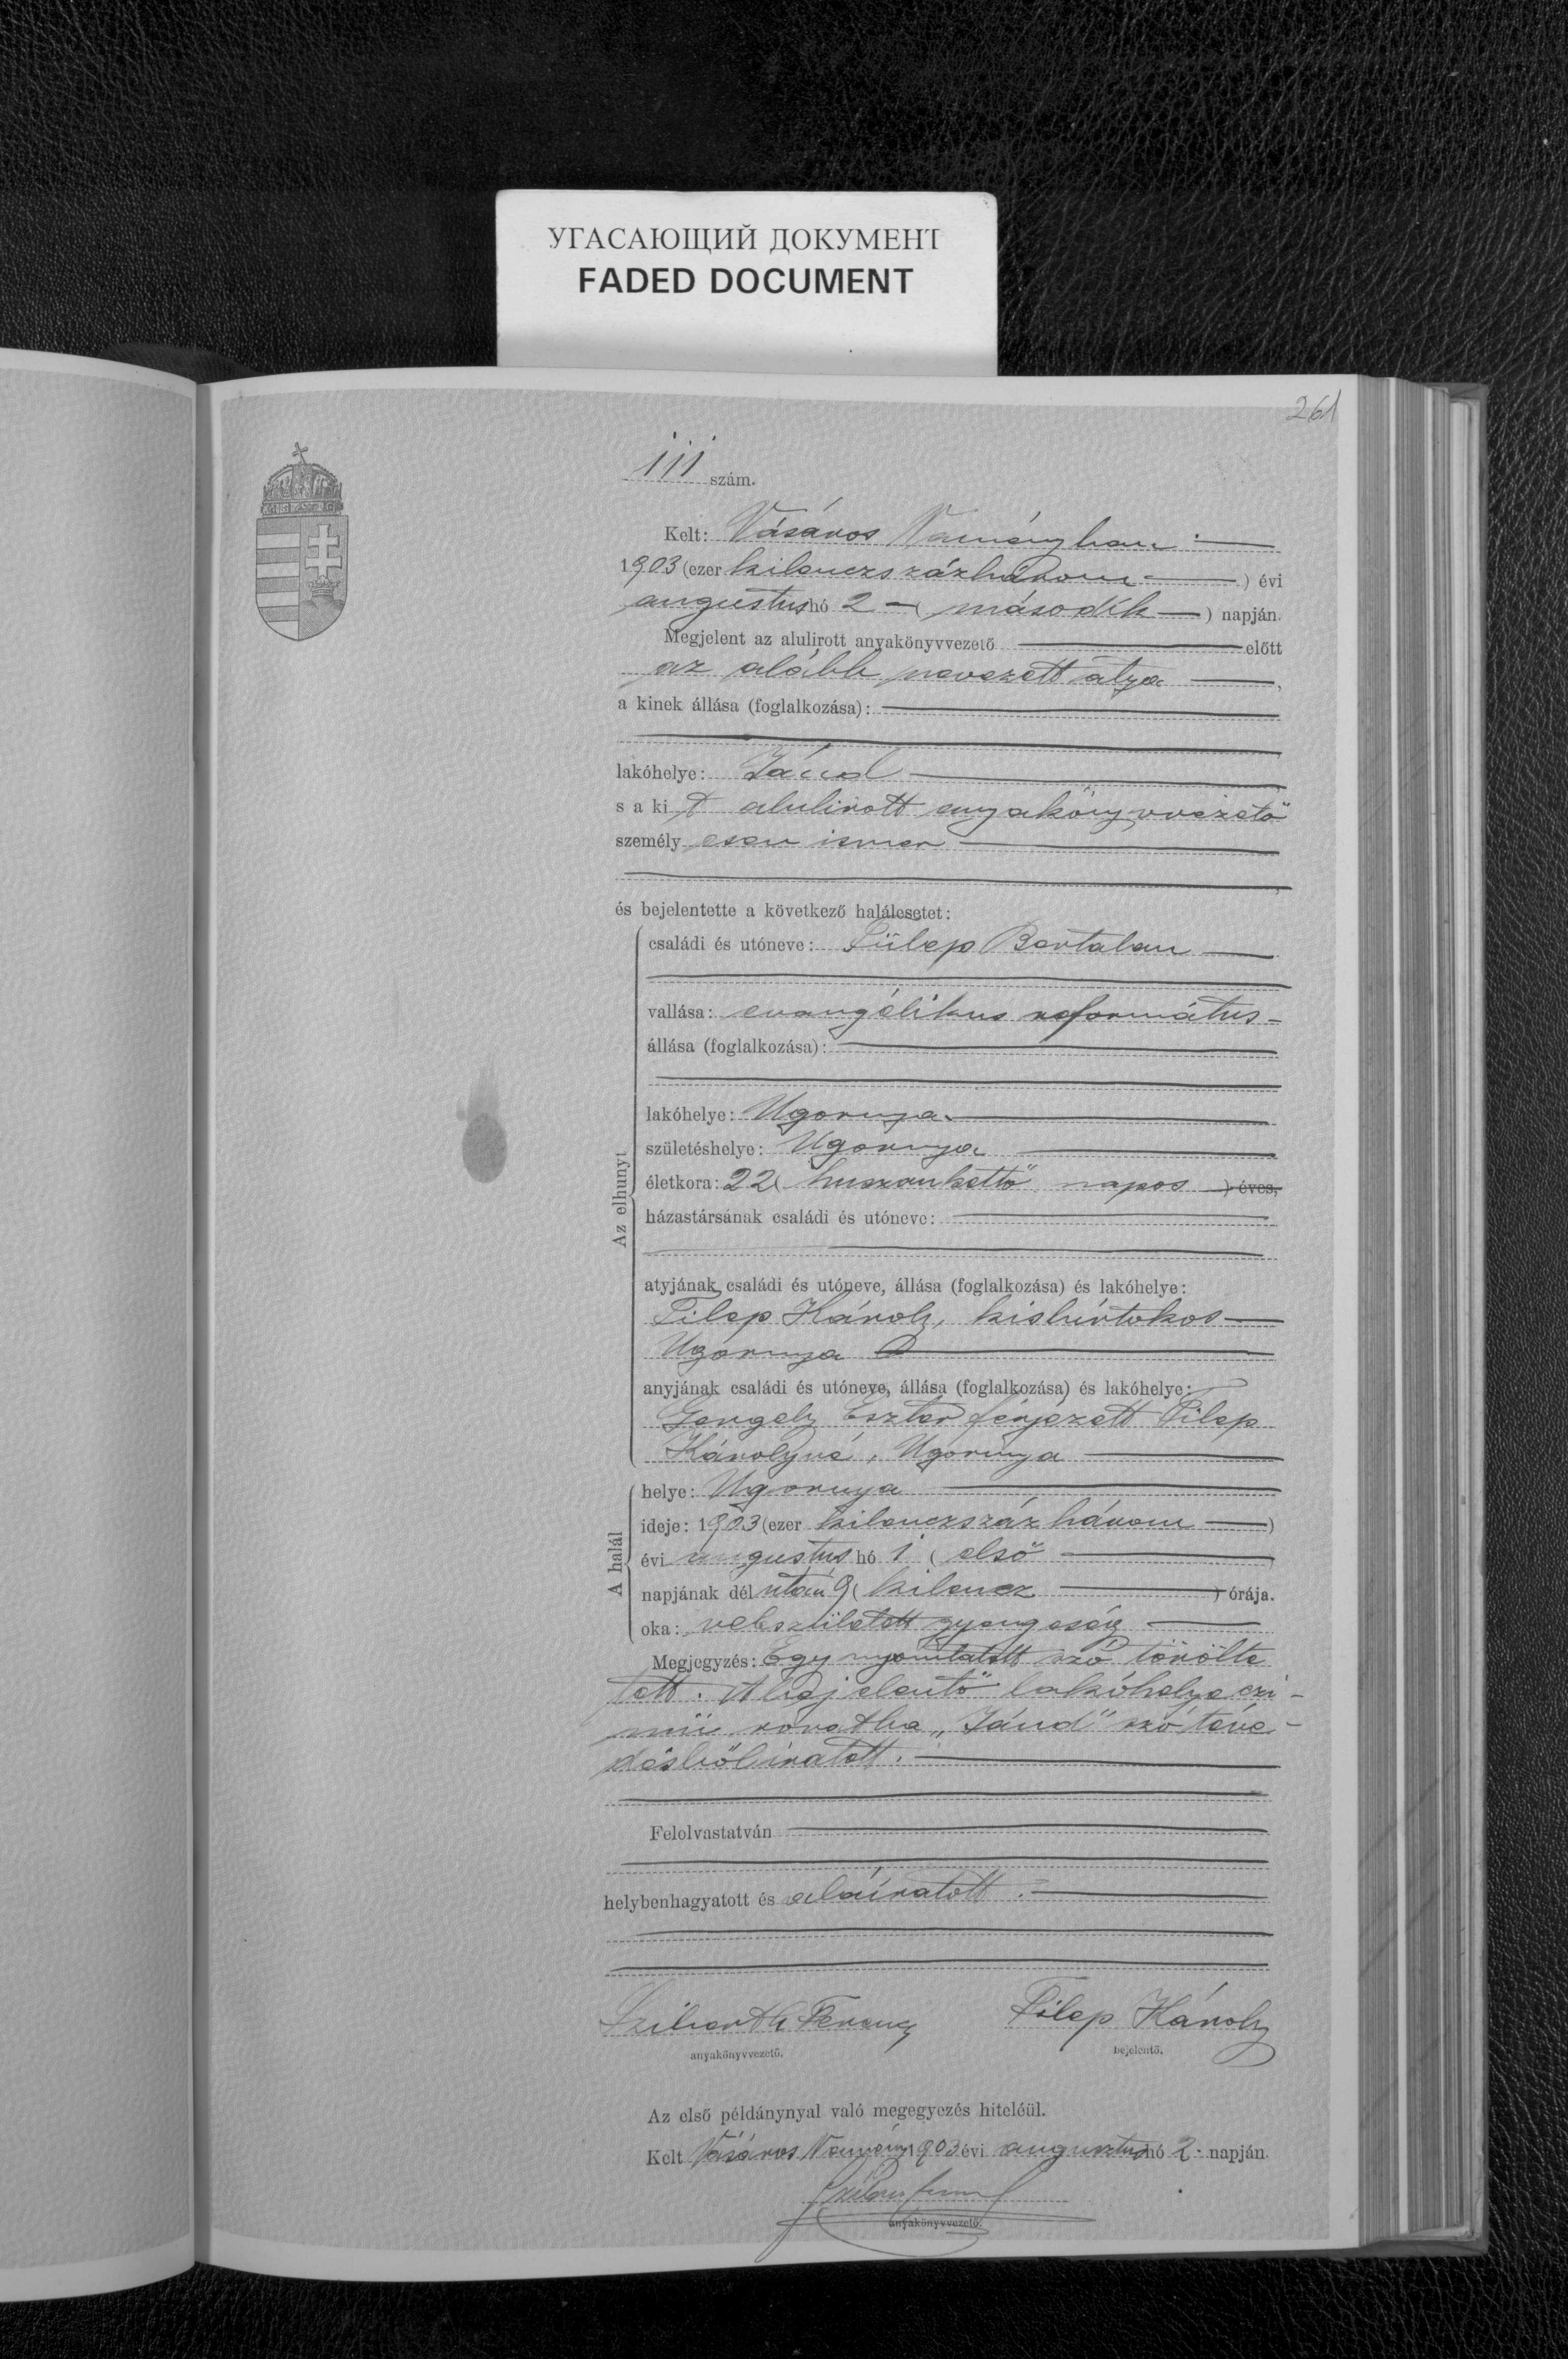 УГАСАЮЩИЙ ДОКУМЕНТ
FADED DOCUMENT
261
111 szám.
Kelt: Vásáros Naményban
1903 (ezer kilenczszázhárom ) évi
augustus hó 2 ( második ) napján.
Megjelent az alulirott anyakönyvvezető előtt
az alább nevezett atya ,
a kinek állása (foglalkozása):
lakóhelye: Jánd
s a kit alulirott anyakönyvvezető
személyesen ismer
és bejelentette a következő halálesetet:
Az elhunyt
családi és utóneve: Fülep Bertalan
vallása: evangélikus református
állása (foglalkozása):
lakóhelye: Ugornya
születéshelye: Ugornya
életkora: 22 ( huszonkettő napos ) éves,
házastársának családi és utóneve:
atyjának családi és utóneve, állása (foglalkozása) és lakóhelye:
Filep Károly, kisbirtokos
Ugornya
anyjának családi és utóneve, állása (foglalkozása) és lakóhelye:
Gergely Eszter férjezett Filep
Károlyné, Ugornya
A halál
helye: Ugornya
ideje: 1903 (ezer kilenczszáz három )
évi augustus hó 1 ( első
napjának dél után 9 ( kilencz ) órája.
oka: veleszületett gyengeség
Megjegyzés: Egy nyomtatott szó törölte
tett. A bejelentő lakóhelye czi-
mü rovatba „Jánd" szó téve-
désből iratott.
Felolvastatván
helybenhagyatott és aláiratott.
Ferencz Filep Károly
anyakönyvvezető. bejelentő.
Az első példánynyal való megegyezés hiteléül.
Kelt Vásáros Namény 1903 évi augusztus hó 2. napján.
anyakönyvvezető.